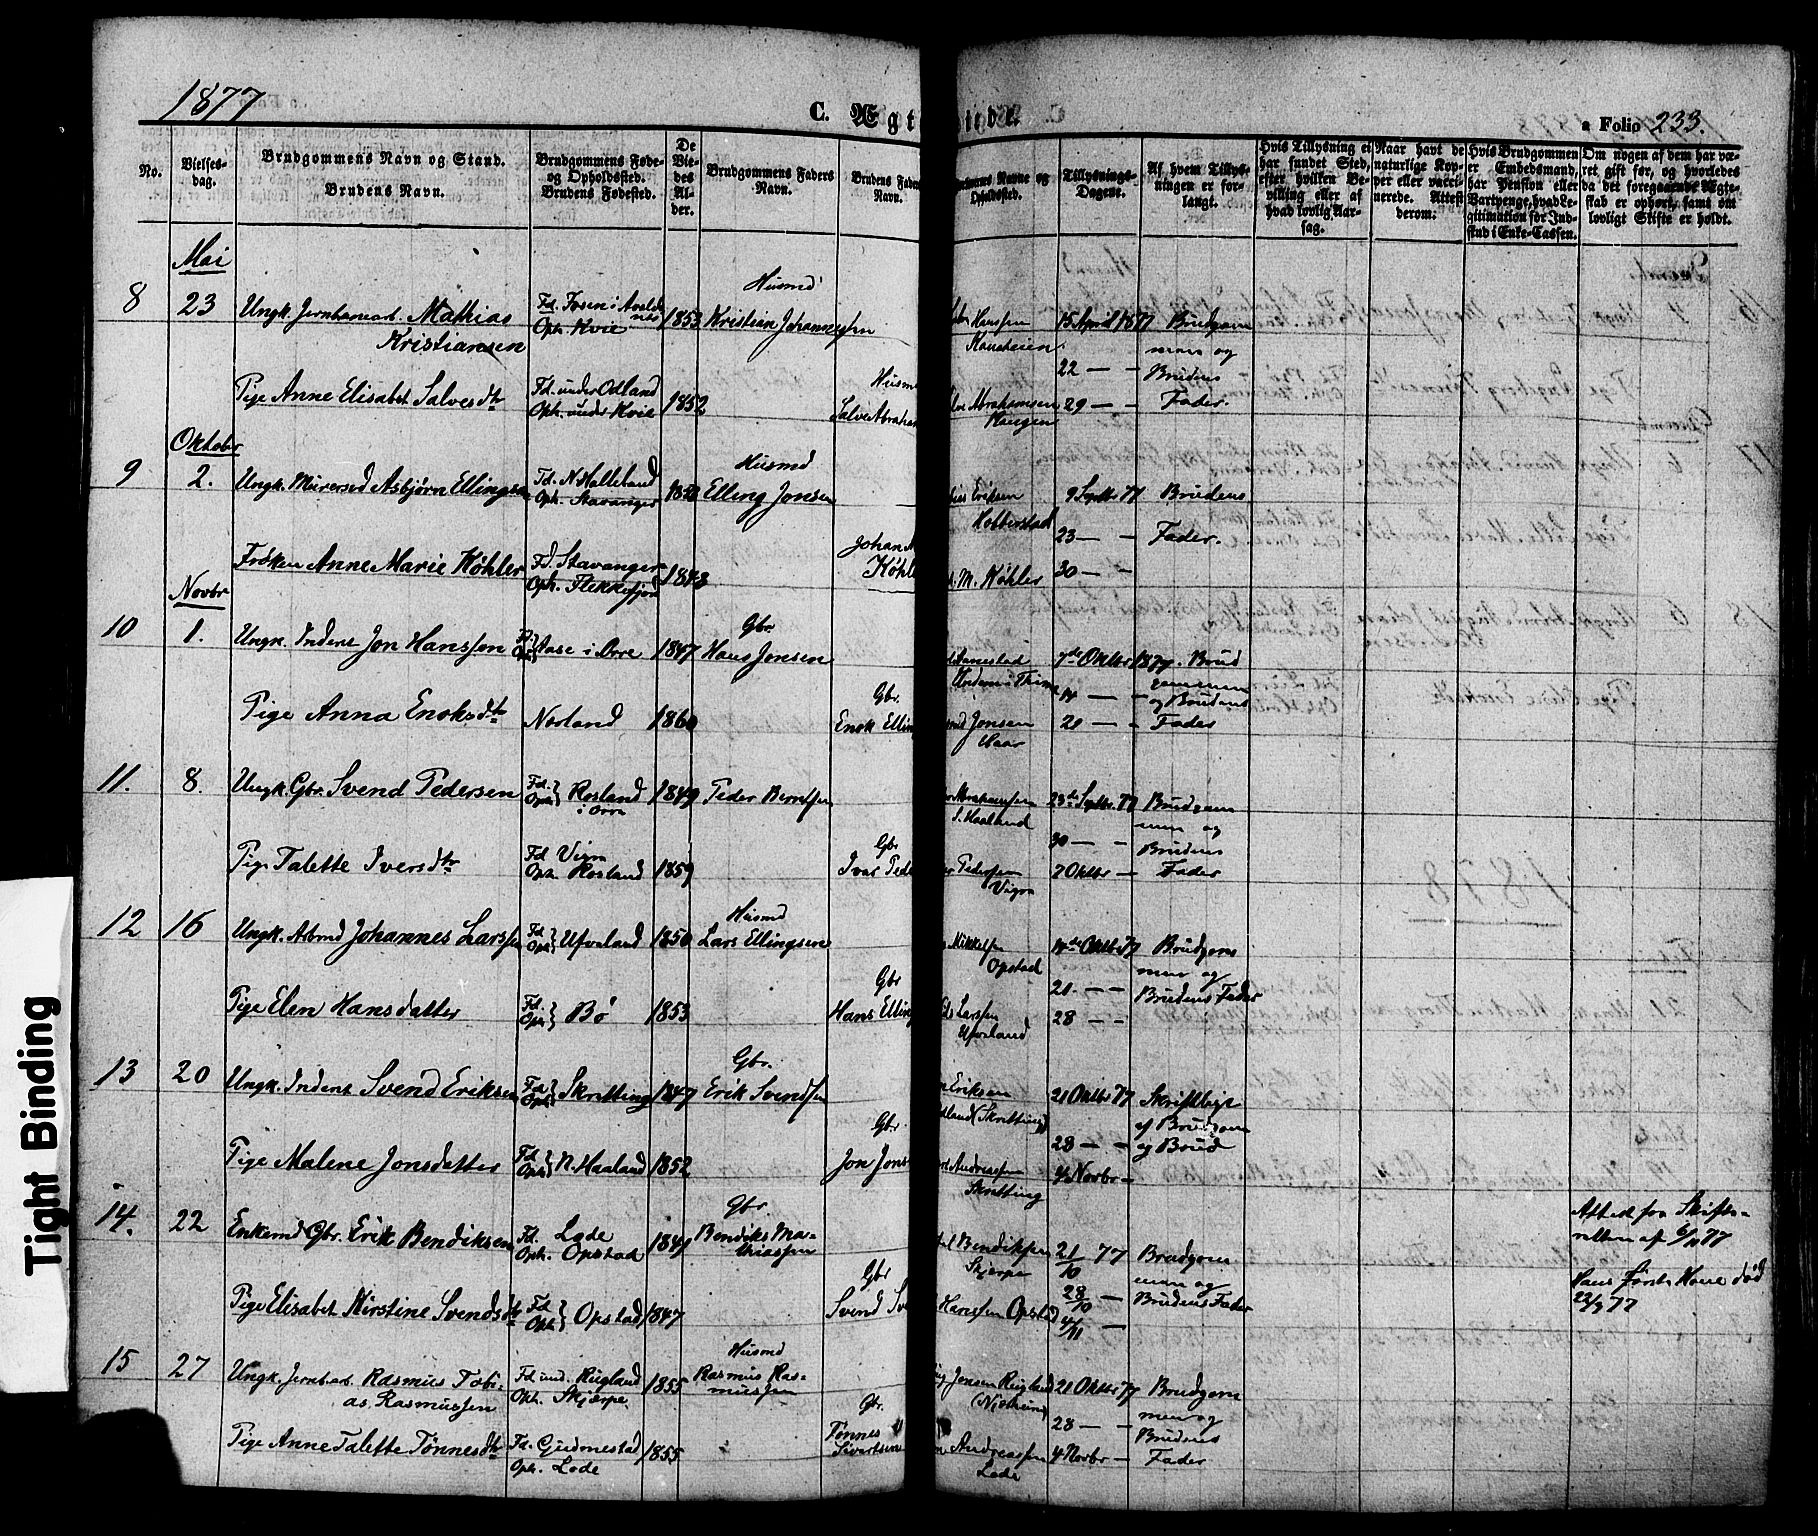 1877
C. Ægt
a Folio 233.
No.
Vielses-
dag.
Brudgommens Navn og Stand.
Brudens Navn.
Brudgommens Føde-
og Opholdssted.
Brudens Fødested.
De
Vie-
des
Al-
der.
Brudgommens Faders
Navn.
Brudens Faders
Navn.
Navne og
Opholdssted.
Tillysnings-
Dagene.
Af hvem Tillys-
ningen er for-
langt.
Hvis Tillysning ei
har fundet Sted,
efter hvilken Be-
villing eller af
hvad lovlig Aar-
sag.
Naar havt de
naturlige Kop-
per eller vacci-
nerede. Attest
derom.
Hvis Brudgommen
er Embedsmand,
har Pension eller
Vartpenge, hvad Le-
gitimation for Ind-
skud i Enke-Cassen.
Om nogen af dem har væ-
ret gift før, og hvorledes
da det foregaaende Ægte-
skab er ophørt, samt om
lovligt Skifte er holdt.
Mai
8 23 Ungk. Jernbanearb. Mathias
Kristiansen
Fd.
Oph. Kvie
1853
Husmd
Kristian Johannessen
Hanssen
15 April 1877
Brudgom
men og
Brudens
Fader.
22 — —
29 — —
Pige Anne Elisabet Salvesdtr
Fd. under Odland
Oph. under Kvie
1852
Husm
Salve Abraham
Abrahamsen
Haugen
Oktober
9 2. Ungk. Murersvd Asbjørn Ellingsen
Fd. N. Halleland
Oph. Stavanger
Husmd
Elling Jonsen
Eriksen
Hobberstad
9 Septbr 77
23 — —
30 — —
Brudens
Fader.
Frøken Anne Marie Køhler
Fd. Stavanger
Oph. Flekkefjord
1848
Johan
Køhle
M. Køhler
Novbr
10 1. Ungk. Inderst Jon Hanssen
Fd.
Oph. Aase i Orre
1847
Gbr.
Hans Jonsen
7de Oktbr 1877.
14 — —
21 — —
Brud
gommen
og Brudens
Fader
Pige Anna Enoksdtr
Norland
1860
Gbr.
Enok Elling
Jonsen
Haar
11. 8. Ungk. Gbr. Svend Pedersen
Fd.
Oph. Rosland
i Orre
1849
Peder Berntsen
Abrahamsen
S. Haaland
23de Septbr. 77
30 — —
7 Oktbr —
Brudgom
men og
Brudens
Fader
Pige Talette Iversdtr
Fd. Vigre
Oph. Rosland
1859
Gbr
Ivar Peder
Pedersen
Vigre
12 16 Ungk. Arbmd Johannes Larssen
Fd.
Oph. Ueland
1850
Husmd
Lars Ellingsen
Mikkelsen
Opstad
14de Oktbr 77
21. — —
28 — —
Brudgom
men og
Brudens Fader
Pige Elen Hansdatter
Fd.
Oph. Bø
1853
Gbr
Hans Elling
Larssen
13 20 Ungk. Inderst Svend Eriksen
Fd.
Oph. Skretting
1847
Gbr.
Erik Svendsen
Eriksen
(Skretting)
21 Oktbr 77
28 — —
4 Novbr —
Skriftligt
af Brudgom
og Brud
Pige Malene Jonsdatter
Fd.
Oph. N. Haaland
1852
Gbr
Jon Jons
Andreassen
Skretting
14. 22 Enkemd Gbr. Erik Bendiksen
Fd. Lode
Oph. Opstad
1841
Gbr.
Bendiks Ma-
thiassen
Bendiksen
Skjerpe
21/10 77
28/10 —
4/11 —
Brudgom
men og
Brudens Fader
Attest fra Skifte-
retten af 6/11 77
Hans første Kone død
22/3 77
Pige Elisabet Kirstine Svendsdtr
Fd.
Oph. Opstad
1847
Gbr
Svend Sv
Hanssen Opstad
15 27 Ungk. Jernb.arb. Rasmus Tobi-
as Rasmussen
Fd. und. Rugland
Oph. Skjerpe.
1855
Husmd
Rasmus Ras-
mussen
Jonsen Rugland
21 Oktbr 77
28 — —
4 Novbr —
Brudgom
men og
Brudens
Fader
Pige Anne Talette Tønnesdtr
Fd. Gudmestad
Oph. Lode
1855
Gbr.
Tønnes
Sivertsen
Andreassen
Lode
1878
Tight Binding